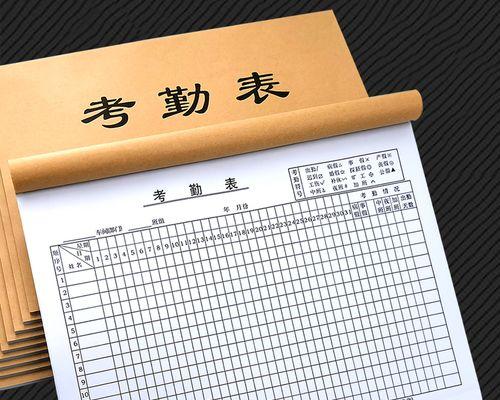 考勤表
考勤表
考勤符号
出勤/ 病假△ 事假× 产假※
迟到 婚假 探亲假◎ 丧假
工伤 补休 旷工 公假▲
中班 夜班 加班
车间(部门) 班组 年 月份
考勤情况
顺序号 星期 日期 姓名 1 2 3 4 5 6 7 8 9 10 11 12 13 14 15 16 17 18 19 20 21 22 23 24 25 26 27 28 29 30 31 病假 事假 中班 夜班 加班 出勤天数
1
2
3
4
5
6
7
8
9
10